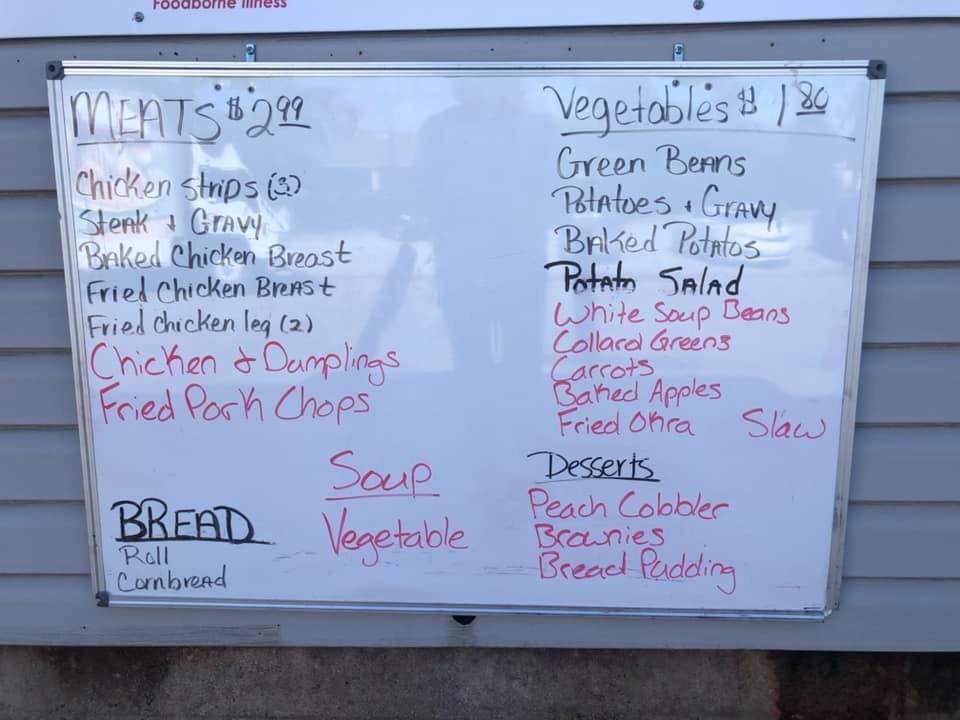 Foodborne Illness
MEATS $2.99
Chicken strips (3)
Steak & Gravy
Baked Chicken Breast
Fried Chicken Breast
Fried Chicken leg (2)
Chicken & Dumplings
Fried Pork Chops
BREAD
Roll
Cornbread
Soup
Vegetable
Vegetables $1.80
Green Beans
Potatoes & Gravy
Baked Potatos
Potato Salad
White Soup Beans
Collard Greens
Carrots
Baked Apples
Fried Okra Slaw
Desserts
Peach Cobbler
Brownies
Bread Pudding